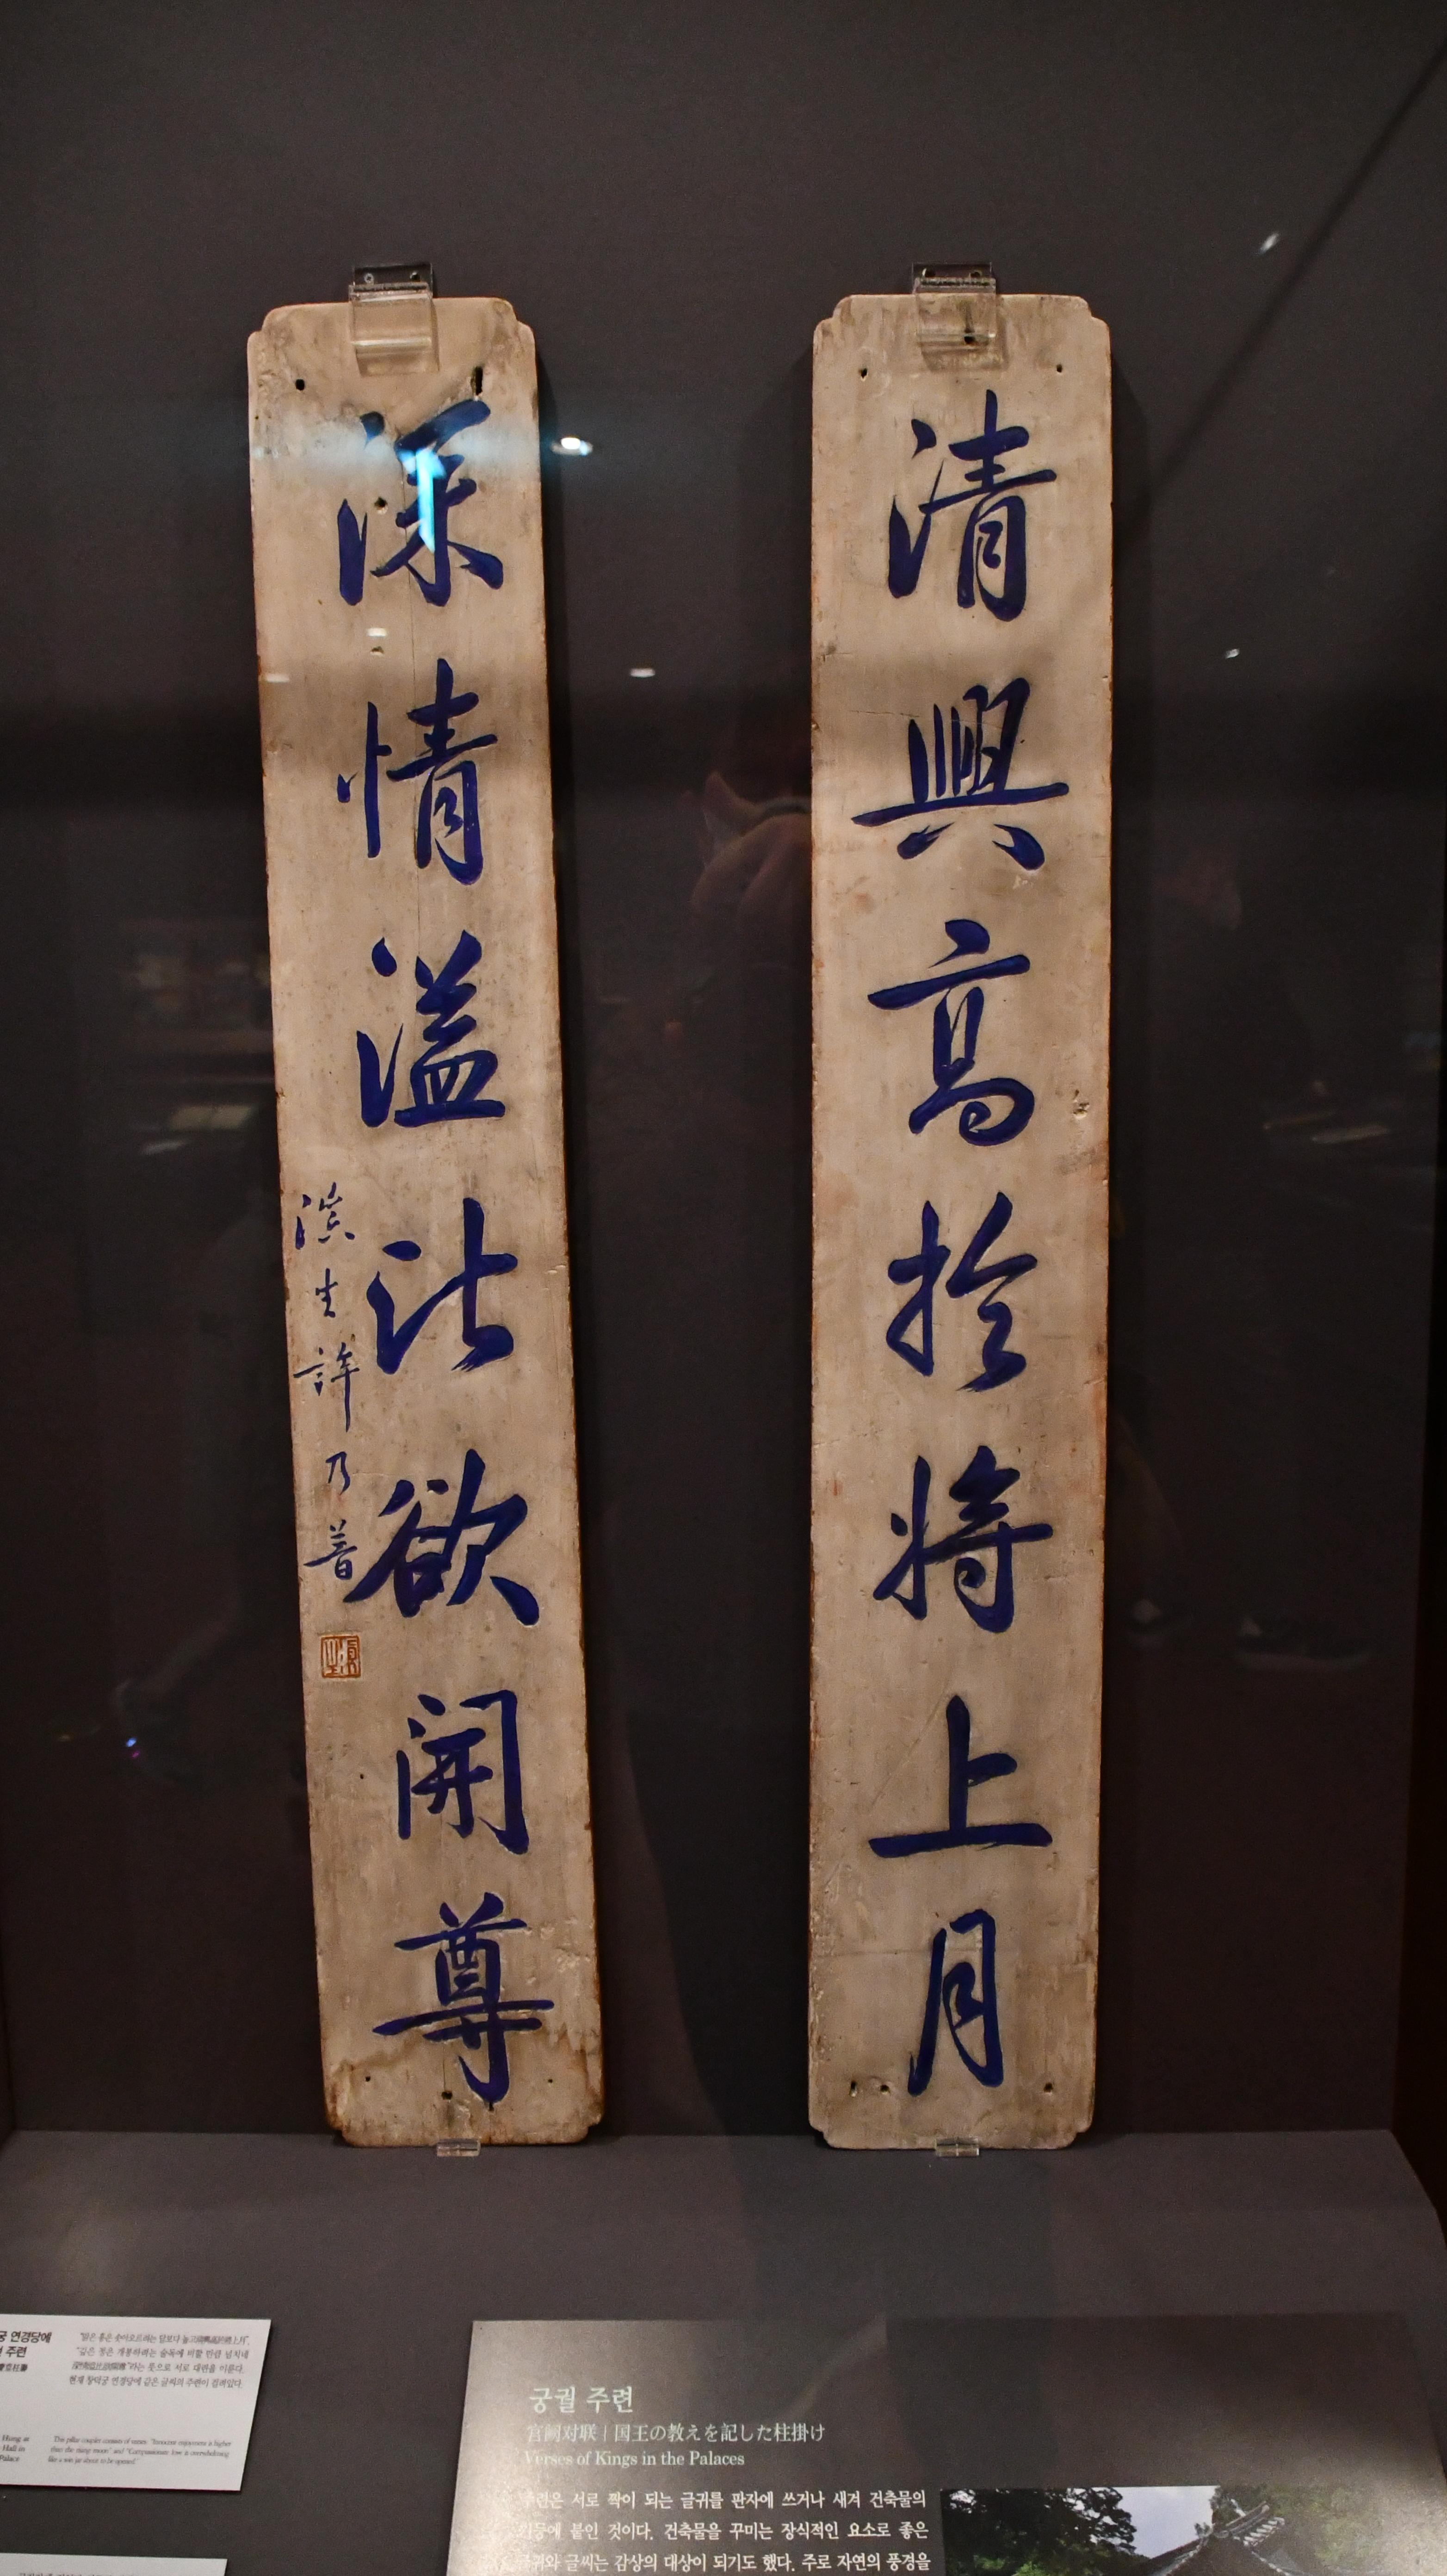 清興高於將上月
深情溢比欲開尊
滇生許乃普
궁 연경당에
주련
"맑은 흥은 솟아오르려는 달보다 높고淸興高於將上月",
"깊은 정은 개봉하려는 술독에 비할 만큼 넘치네
深情溢比欲開尊"라는 뜻으로 서로 대련을 이룬다.
현재 창덕궁 연경당에 같은 글씨의 주련이 걸려있다.
Hung at
Hall in
Palace
This pillar couplet consists of verses: "Innocent enjoyment is higher
than the rising moon" and "Compassionate love is overwhelming
like a wine jar about to be opened."
궁궐 주련
官阙对联 | 国王の教えを記した柱掛け
Verses of Kings in the Palaces
주련은 서로 짝이 되는 글귀를 판자에 쓰거나 새겨 건축물의
기둥에 붙인 것이다. 건축물을 꾸미는 장식적인 요소로 좋은
글귀와 글씨는 감상의 대상이 되기도 했다. 주로 자연의 풍경을